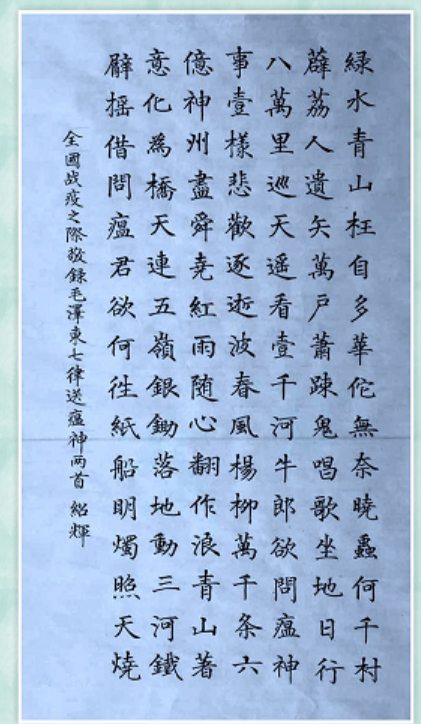 緑水青山枉自多華佗無奈曉蟲何千村
薜荔人遺矢萬戶蕭踈鬼唱歌坐地日行
八萬里巡天遥看壹千河牛郎欲問瘟神
事壹樣悲歡逐逝波春風楊柳萬千条六
億神州盡舜堯紅雨随心翻作浪青山著
意化為橋天連五嶺銀鋤落地動三河鐵
臂摇借問瘟君欲何往紙船明燭照天燒
全國战疫之際敬錄毛澤東七律送瘟神两首 紹輝